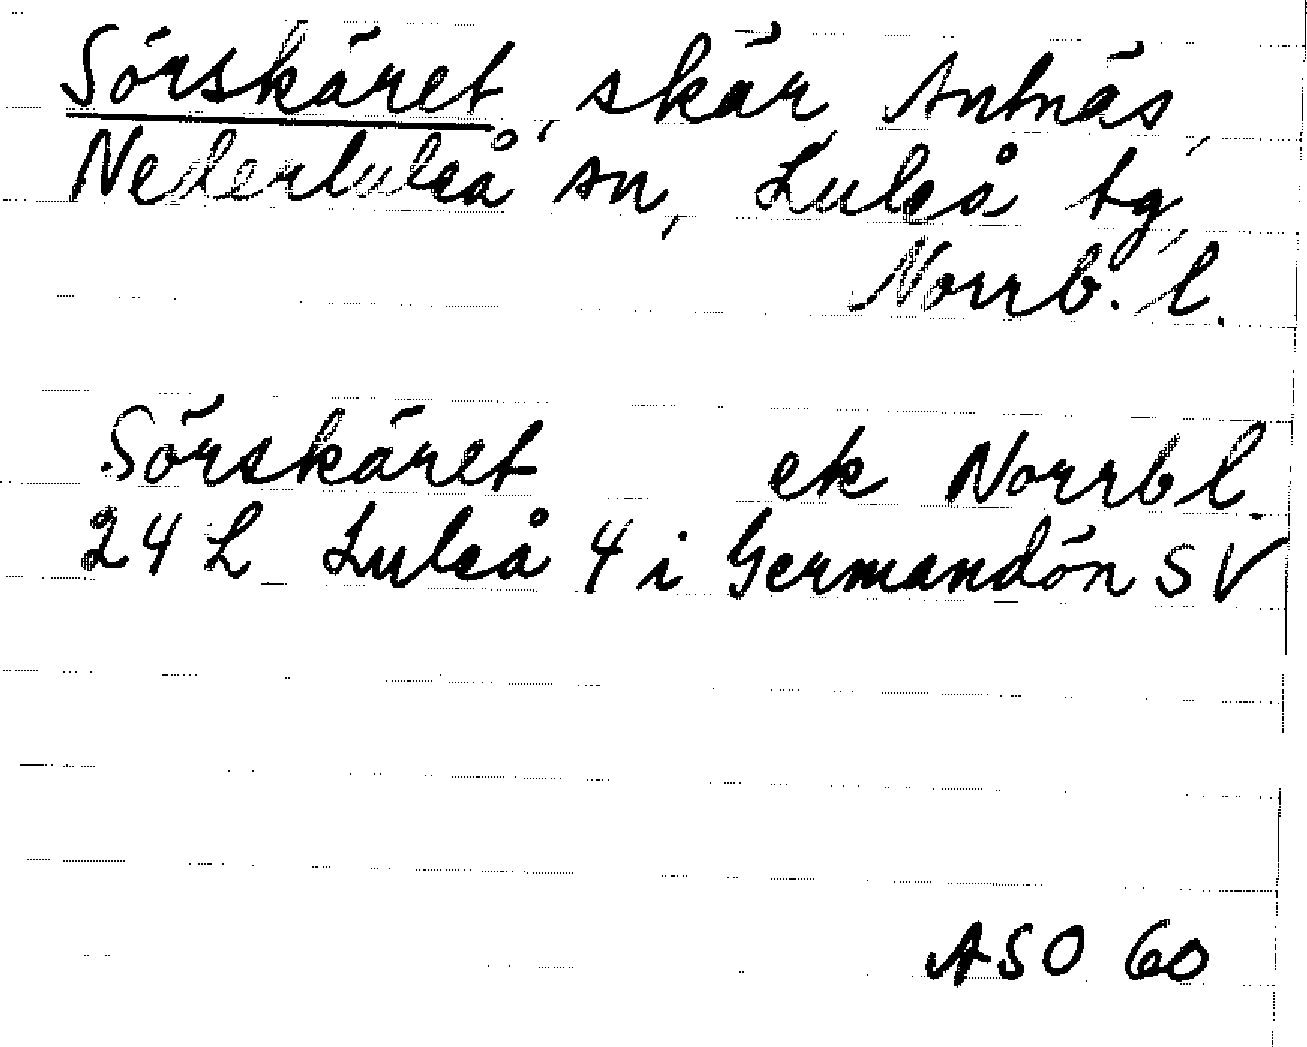 Sörskäret, skär, Antnäs,
Nederluleå sn, Luleå tg,
Norrb. l.
Sörskäret ek Norrb l.
24 L Luleå 4 i Germandön SV
ASO 60